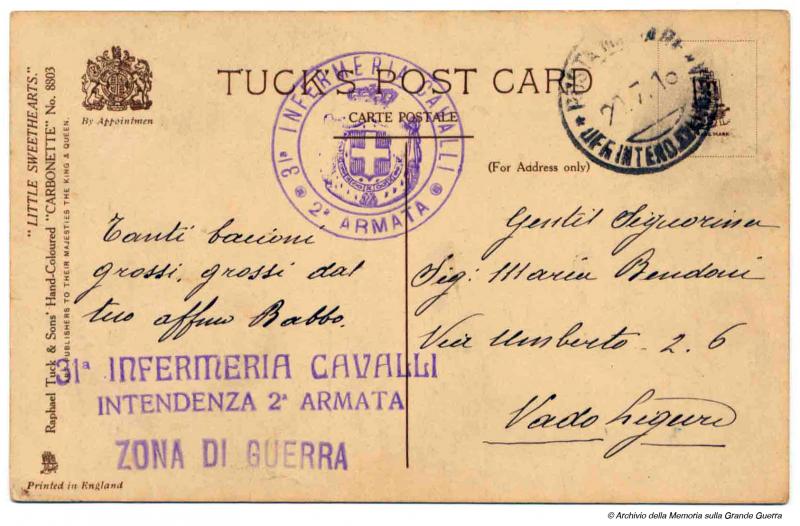 TUCK'S POST CARD
CARTE POSTALE
(For Address only)
By Appointmen
"LITTLE SWEETHEARTS."
Raphael Tuck & Sons' Hand-Coloured "CARBONETTE" No. 8803
PUBLISHERS TO THEIR MAJESTIES THE KING & QUEEN.
31ª INFERMERIA CAVALLI
2ª ARMATA
UFF. INTEND.
Tanti bacioni
grossi, grossi dal
tuo affmo Babbo.
31ª INFERMERIA CAVALLI
INTENDENZA 2ª ARMATA
ZONA DI GUERRA
Gentil Signorina
Sig: Maria Bendoni
Via Umberto 2. 6
Vado Ligure
Printed in England
© Archivio della Memoria sulla Grande Guerra